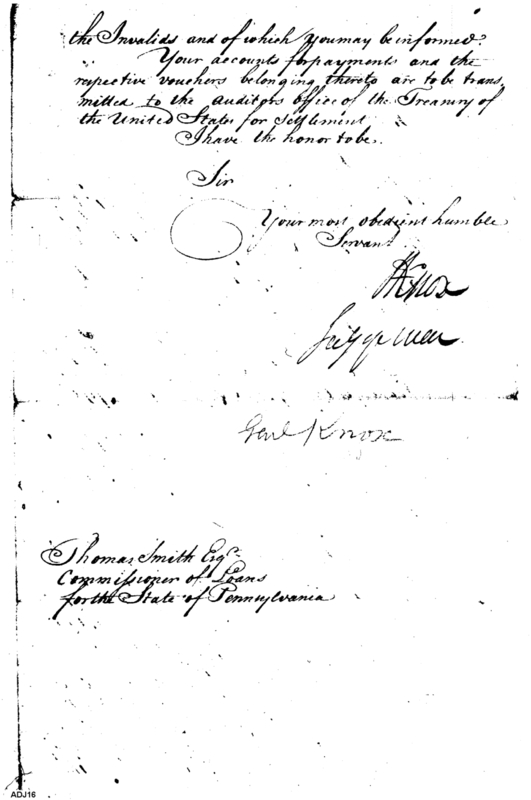 the Invalids and of which you may be informed.
Your accounts for payments and the
respective vouchers belonging thereto are to be trans
mitted to the auditors office of the Treasury of
the United States for settlement
I have the honor to be.
Sir
Your most obedient humble
Servant
HKnox
Secy of War
Genl Knox
Thomas Smith Esqr
Commissioner of Loans
for the State of Pennsylvania
ADJ16